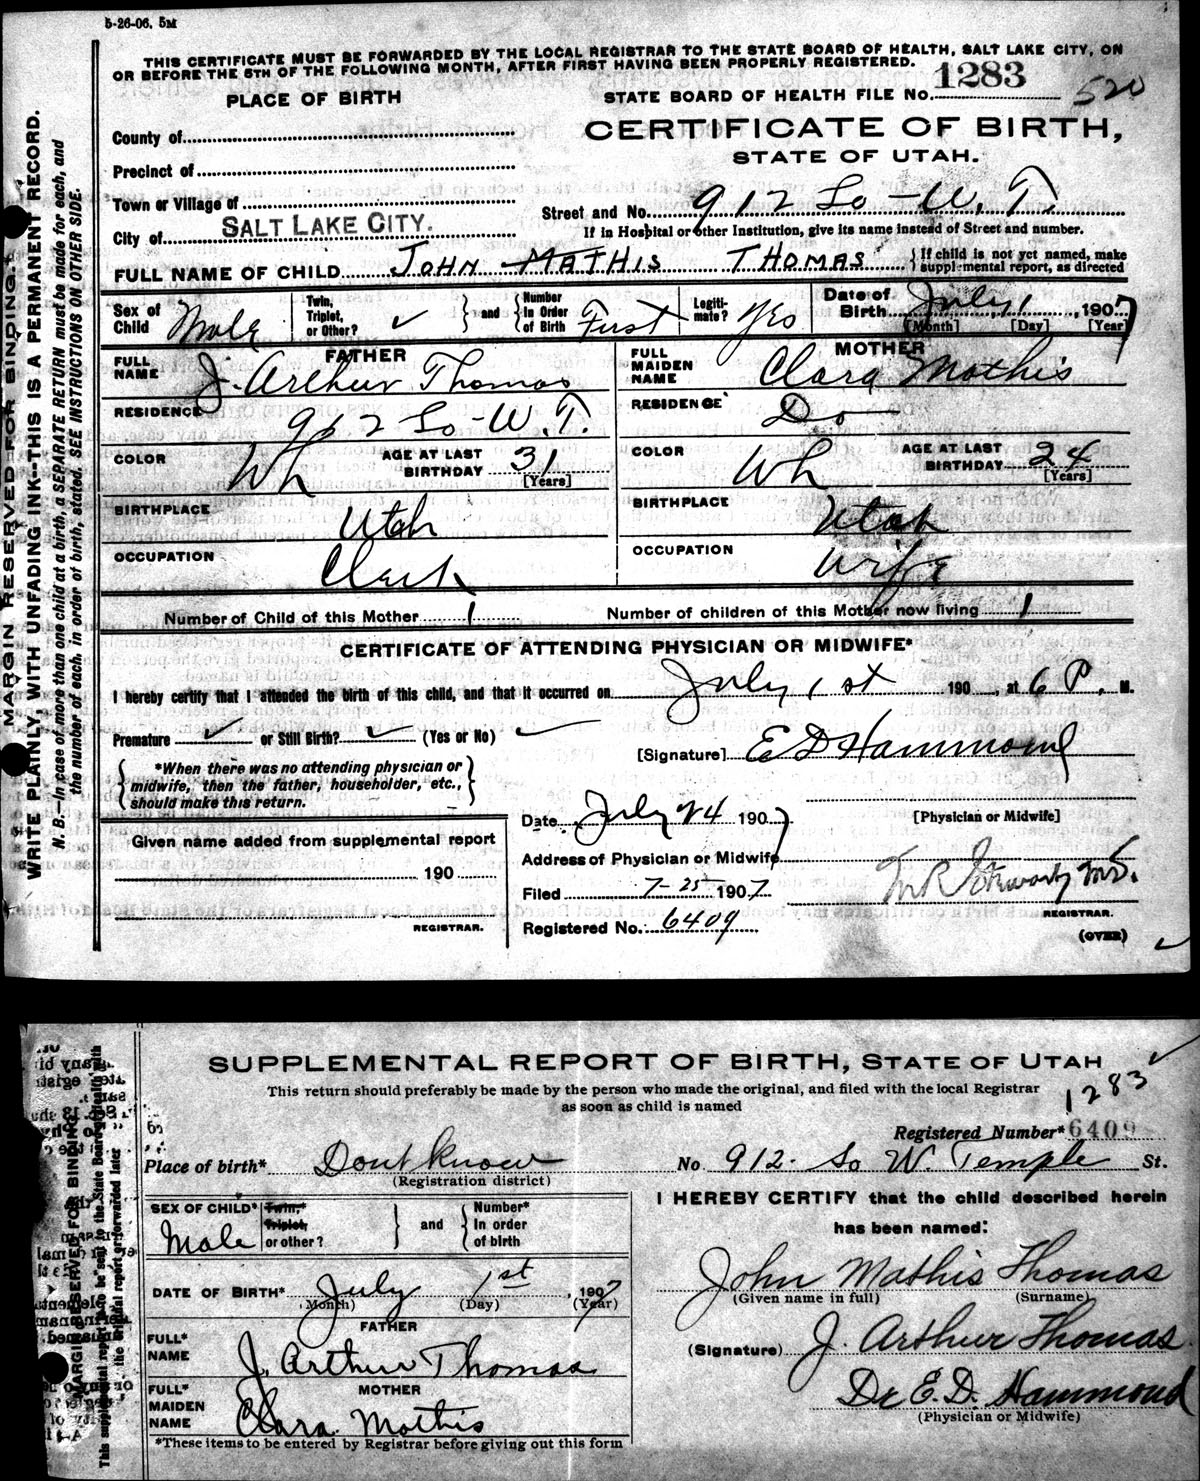 5-26-06. 5M
THIS CERTIFICATE MUST BE FORWARDED BY THE LOCAL REGISTRAR TO THE STATE BOARD OF HEALTH, SALT LAKE CITY, ON
OR BEFORE THE 5TH OF THE FOLLOWING MONTH, AFTER FIRST HAVING BEEN PROPERLY REGISTERED.
STATE BOARD OF HEALTH FILE No. 1283 520
PLACE OF BIRTH
CERTIFICATE OF BIRTH,
STATE OF UTAH.
County of
Precinct of
Town or Village of
City of SALT LAKE CITY.
Street and No. 912 So - W. T.
If in Hospital or other Institution, give its name instead of Street and number.
FULL NAME OF CHILD JOHN MATHIS THOMAS
If child is not yet named, make
supplemental report, as directed
Sex of Child Male
Twin, Triplet, or Other? ✓ and Number In Order of Birth First
Legitimate? Yes
Date of Birth July 1, 1907
[Month] [Day] [Year]
FATHER
FULL NAME J. Arthur Thomas
RESIDENCE 912 So - W. T.
COLOR Wh
AGE AT LAST BIRTHDAY 31
[Years]
BIRTHPLACE Utah
OCCUPATION Clerk
MOTHER
FULL MAIDEN NAME Clara Mathis
RESIDENCE Do
COLOR Wh
AGE AT LAST BIRTHDAY 24
[Years]
BIRTHPLACE Utah
OCCUPATION Wife
Number of Child of this Mother 1 Number of children of this Mother now living 1
CERTIFICATE OF ATTENDING PHYSICIAN OR MIDWIFE*
I hereby certify that I attended the birth of this child, and that it occurred on July 1st 190 , at 6 P. M.
Premature ✓ or Still Birth? ✓ (Yes or No) ✓
[Signature] E D Hammond
*When there was no attending physician or
midwife, then the father, householder, etc.,
should make this return.
Given name added from supplemental report
190
REGISTRAR.
Date July 24 1907
[Physician or Midwife]
Address of Physician or Midwife
Filed 7-25 1907
REGISTRAR.
Registered No. 6409
(OVER)
MARGIN RESERVED FOR BINDING.
WRITE PLAINLY, WITH UNFADING INK--THIS IS A PERMANENT RECORD.
N. B.—In case of more than one child at a birth, a SEPARATE RETURN must be made for each, and
the number of each, in order of birth, stated. SEE INSTRUCTIONS ON OTHER SIDE.
SUPPLEMENTAL REPORT OF BIRTH, STATE OF UTAH
This return should preferably be made by the person who made the original, and filed with the local Registrar
as soon as child is named
1283
Registered Number* 6409
Place of birth* Dont know No 912. So W. Temple St.
(Registration district)
SEX OF CHILD* Male
Twin,* Triplet, or other? and Number* In order of birth
I HEREBY CERTIFY that the child described herein
has been named:
John Mathis Thomas
(Given name in full) (Surname)
DATE OF BIRTH* July 1st, 1907
(Month) (Day) (Year)
FATHER
FULL* NAME J. Arthur Thomas
(Signature) J. Arthur Thomas
MOTHER
FULL* MAIDEN NAME Clara Mathis
Dr E. D. Hammond
(Physician or Midwife)
*These items to be entered by Registrar before giving out this form
MARGIN RESERVED FOR BINDING.